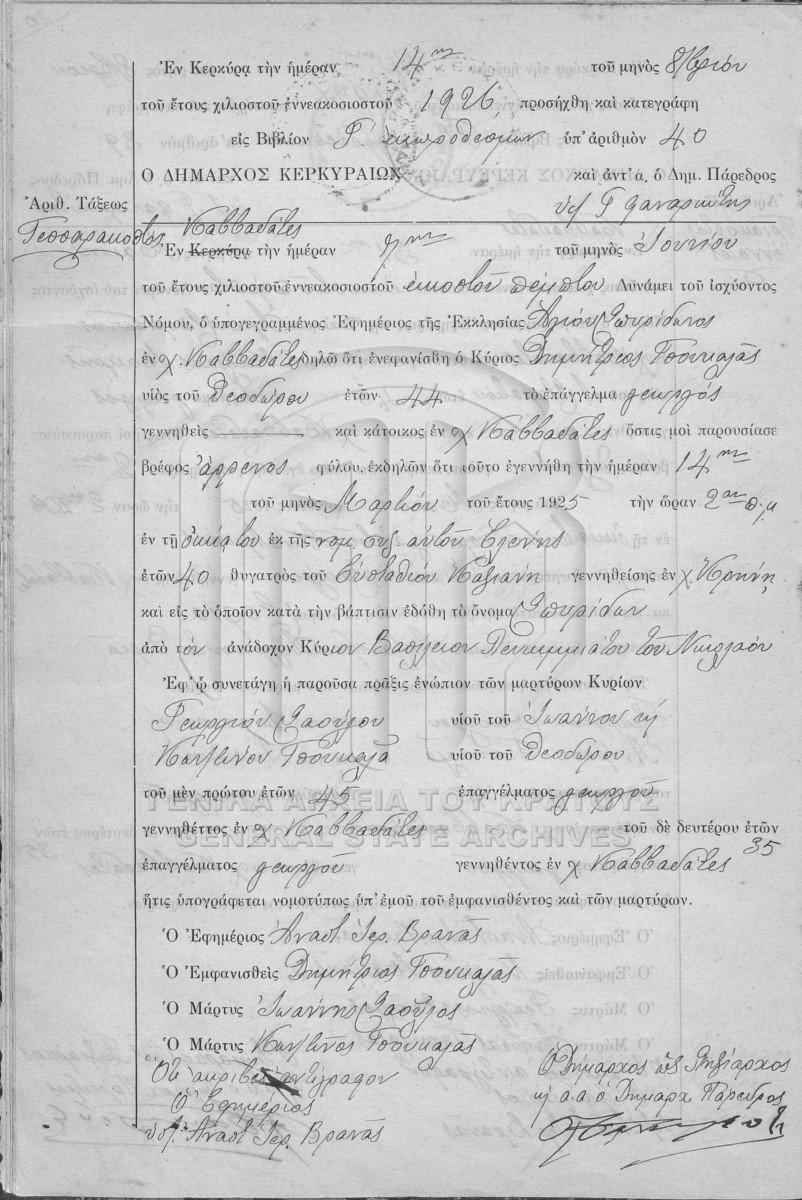 Ἐν Κερκύρᾳ τὴν ἡμέραν 14ην τοῦ μηνὸς 8/βρίου
τοῦ ἔτους χιλιοστοῦ ἐννεακοσιοστοῦ 1926 προσήχθη καὶ κατεγράφη
εἰς Βιβλίον Γ ἐκπροθέσμων ὑπ' ἀριθμὸν 40
Ο ΔΗΜΑΡΧΟΣ ΚΕΡΚΥΡΑΙΩΝ καὶ ἀντ' α. ὁ Δημ. Πάρεδρος
Ἀριθ. Τάξεως
Τεσσαρακοστός
Καββαδάτες
Ἐν Κερκύρᾳ τὴν ἡμέραν 7ην τοῦ μηνὸς Ἰουνίου
τοῦ ἔτους χιλιοστοῦ ἐννεακοσιοστοῦ εἰκοστοῦ πέμπτου Δυνάμει τοῦ ἰσχύοντος
Νόμου, ὁ ὑπογεγραμμένος Ἐφημέριος τῆς Ἐκκλησίας Ἁγίου Σπυρίδωνος
ἐν χ. Καββαδάτες δηλῶ ὅτι ἐνεφανίσθη ὁ Κύριος Δημήτριος Τσουκαλᾶς
υἱὸς τοῦ Θεοδώρου ἐτῶν 44 τὸ ἐπάγγελμα γεωργός
γεννηθεὶς καὶ κάτοικος ἐν χ Καββαδάτες ὅστις μοὶ παρουσίασε
βρέφος ἄρρενος φύλου, ἐκδηλῶν ὅτι τοῦτο ἐγεννήθη τὴν ἡμέραν 14ην
τοῦ μηνὸς Μαρτίου τοῦ ἔτους 1925 τὴν ὥραν 2αν π.μ
ἐν τῇ οἰκίᾳ του ἐκ τῆς νομ. συζ. αὐτοῦ Ἑλένης
ἐτῶν 40 θυγατρὸς τοῦ Εὐσταθίου γεννηθείσης ἐν χ.
καὶ εἰς τὸ ὁποῖον κατὰ τὴν βάπτισιν ἐδόθη τὸ ὄνομα Σπυρίδων
ἀπὸ τὸν ἀνάδοχον Κύριον Βασίλειον τοῦ Νικολάου
Ἐφ' ᾧ συνετάγη ἡ παροῦσα πρᾶξις ἐνώπιον τῶν μαρτύρων Κυρίων
Γεωργίου Σαούλου υἱοῦ τοῦ Ἰωάννου κ
Κων/τίνου Τσουκαλᾶ υἱοῦ τοῦ Θεοδώρου
τοῦ μὲν πρώτου ἐτῶν 45 ἐπαγγέλματος γεωργοῦ
ΓΕΝΙΚΑ ΑΡΧΕΙΑ ΤΟΥ ΚΡΑΤΟΥΣ
γεννηθέττος ἐν χ Καββαδάτες τοῦ δὲ δευτέρου ἐτῶν 35
GENERAL STATE ARCHIVES
ἐπαγγέλματος γεωργοῦ γεννηθέντος ἐν χ Καββαδάτες
ἥτις ὑπογράφεται νομοτύπως ὑπ' ἐμοῦ τοῦ ἐμφανισθέντος καὶ τῶν μαρτύρων.
Ὁ Ἐφημέριος Ἀναστ. Ἱερ. Βρανᾶς
Ὁ Ἐμφανισθεὶς Δημήτριος Τσουκαλᾶς
Ὁ Μάρτυς Ἰωάννης Σαοῦλος
Ὁ Μάρτυς Κων/τῖνος Τσουκαλᾶς
Ὅτι ἀκριβὲς ἀντίγραφον
Ὁ Ἐφημέριος
Ὑπ. Ἀναστ. Ἱερ. Βρανᾶς
Ὁ Δήμαρχος ὡς Ληξίαρχος
κ α.α. ὁ Δημαρχ. Πάρεδρος